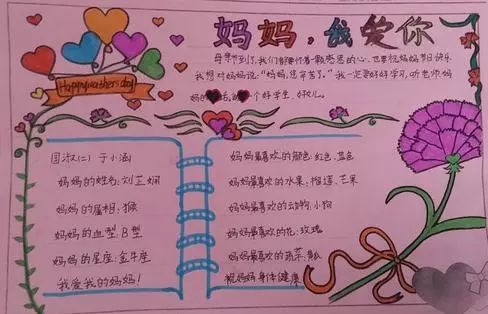 妈妈,我爱你
Happy mothers day
母亲节到了,我们都要怀着一颗感恩的心,也要祝妈妈节日快乐
我想对妈妈说:“妈妈,您辛苦了。”我一定要好好学习,听老师妈
妈的话,做个好学生、好女儿。
国淑(二) 于小涵
妈妈的姓名:刘芷娴
妈妈的属相:猴
妈妈的血型:B型
妈妈的星座:金牛座
我爱我的妈妈!
妈妈最喜欢的颜色:红色、蓝色
妈妈最喜欢的水果:榴莲、芒果
妈妈最喜欢的动物:小狗
妈妈最喜欢的花:玫瑰
妈妈最喜欢的蔬菜:黄瓜
祝妈妈身体健康